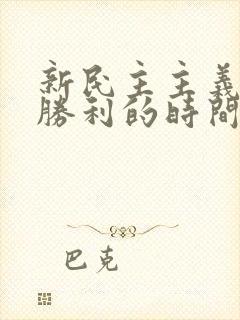 新民主主義
勝利的時間
巴克